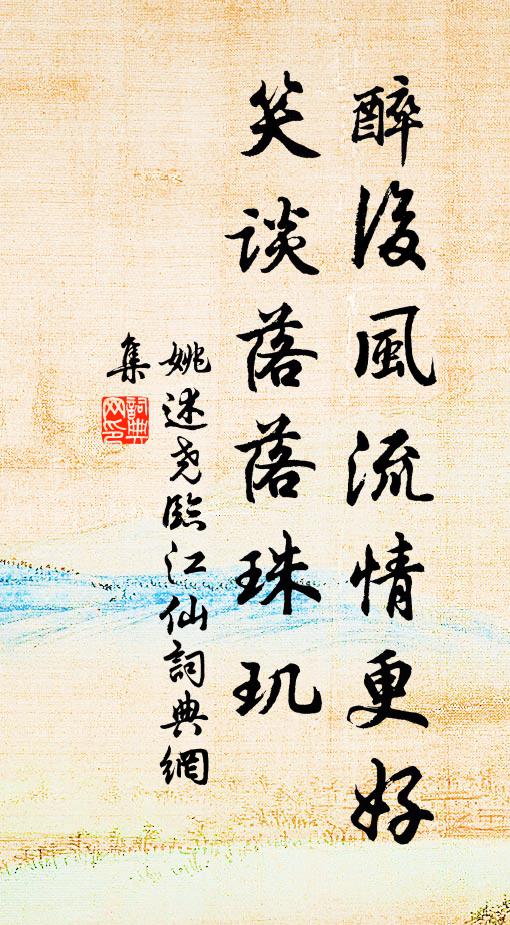 醉後風流情更好
笑談落落珠玑
姚述尧臨江仙詞典網
集
詞典网印